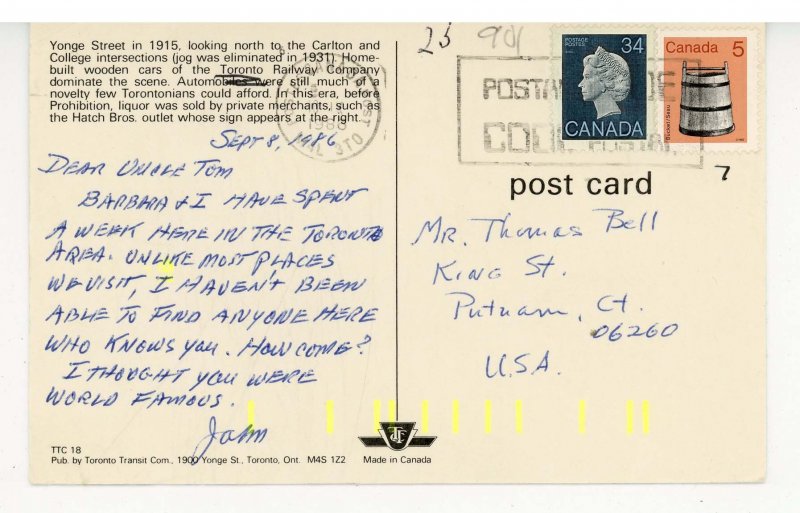 Yonge Street in 1915, looking north to the Carlton and
College intersections (jog was eliminated in 1931). Home-
built wooden cars of the Toronto Railway Company
dominate the scene. Automobiles were still much of a
novelty few Torontonians could afford. In this era, before
Prohibition, liquor was sold by private merchants, such as
the Hatch Bros. outlet whose sign appears at the right.
Sept 8, 1986
DEAR UNCLE TOM
BARBARA & I HAVE SPENT
A WEEK HERE IN THE TORONTO
AREA. UNLIKE MOST PLACES
WE VISIT, I HAVEN'T BEEN
ABLE TO FIND ANYONE HERE
WHO KNOWS YOU. HOW COME?
I THOUGHT YOU WERE
WORLD FAMOUS.
John
TTC 18
Pub. by Toronto Transit Com., 1900 Yonge St., Toronto, Ont. M4S 1Z2 Made in Canada
TTC
POSTAGE POSTES
34
CANADA
Canada 5
Bucket/Seau
POSTAL CODE
CODE POSTAL
post card
7
Mr. Thomas Bell
King St.
Putnam, Ct.
06260
U.S.A.